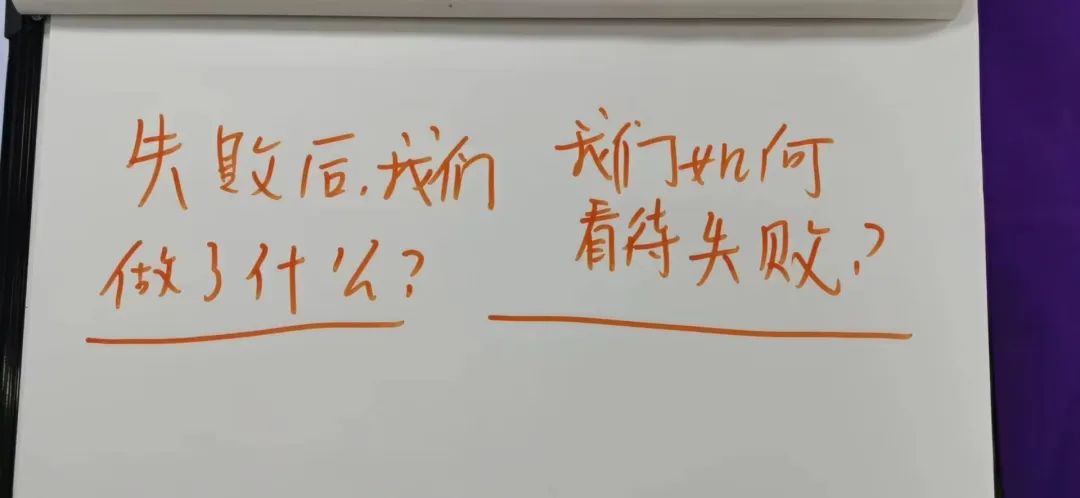 失败后,我们
做了什么?
我们如何
看待失败?